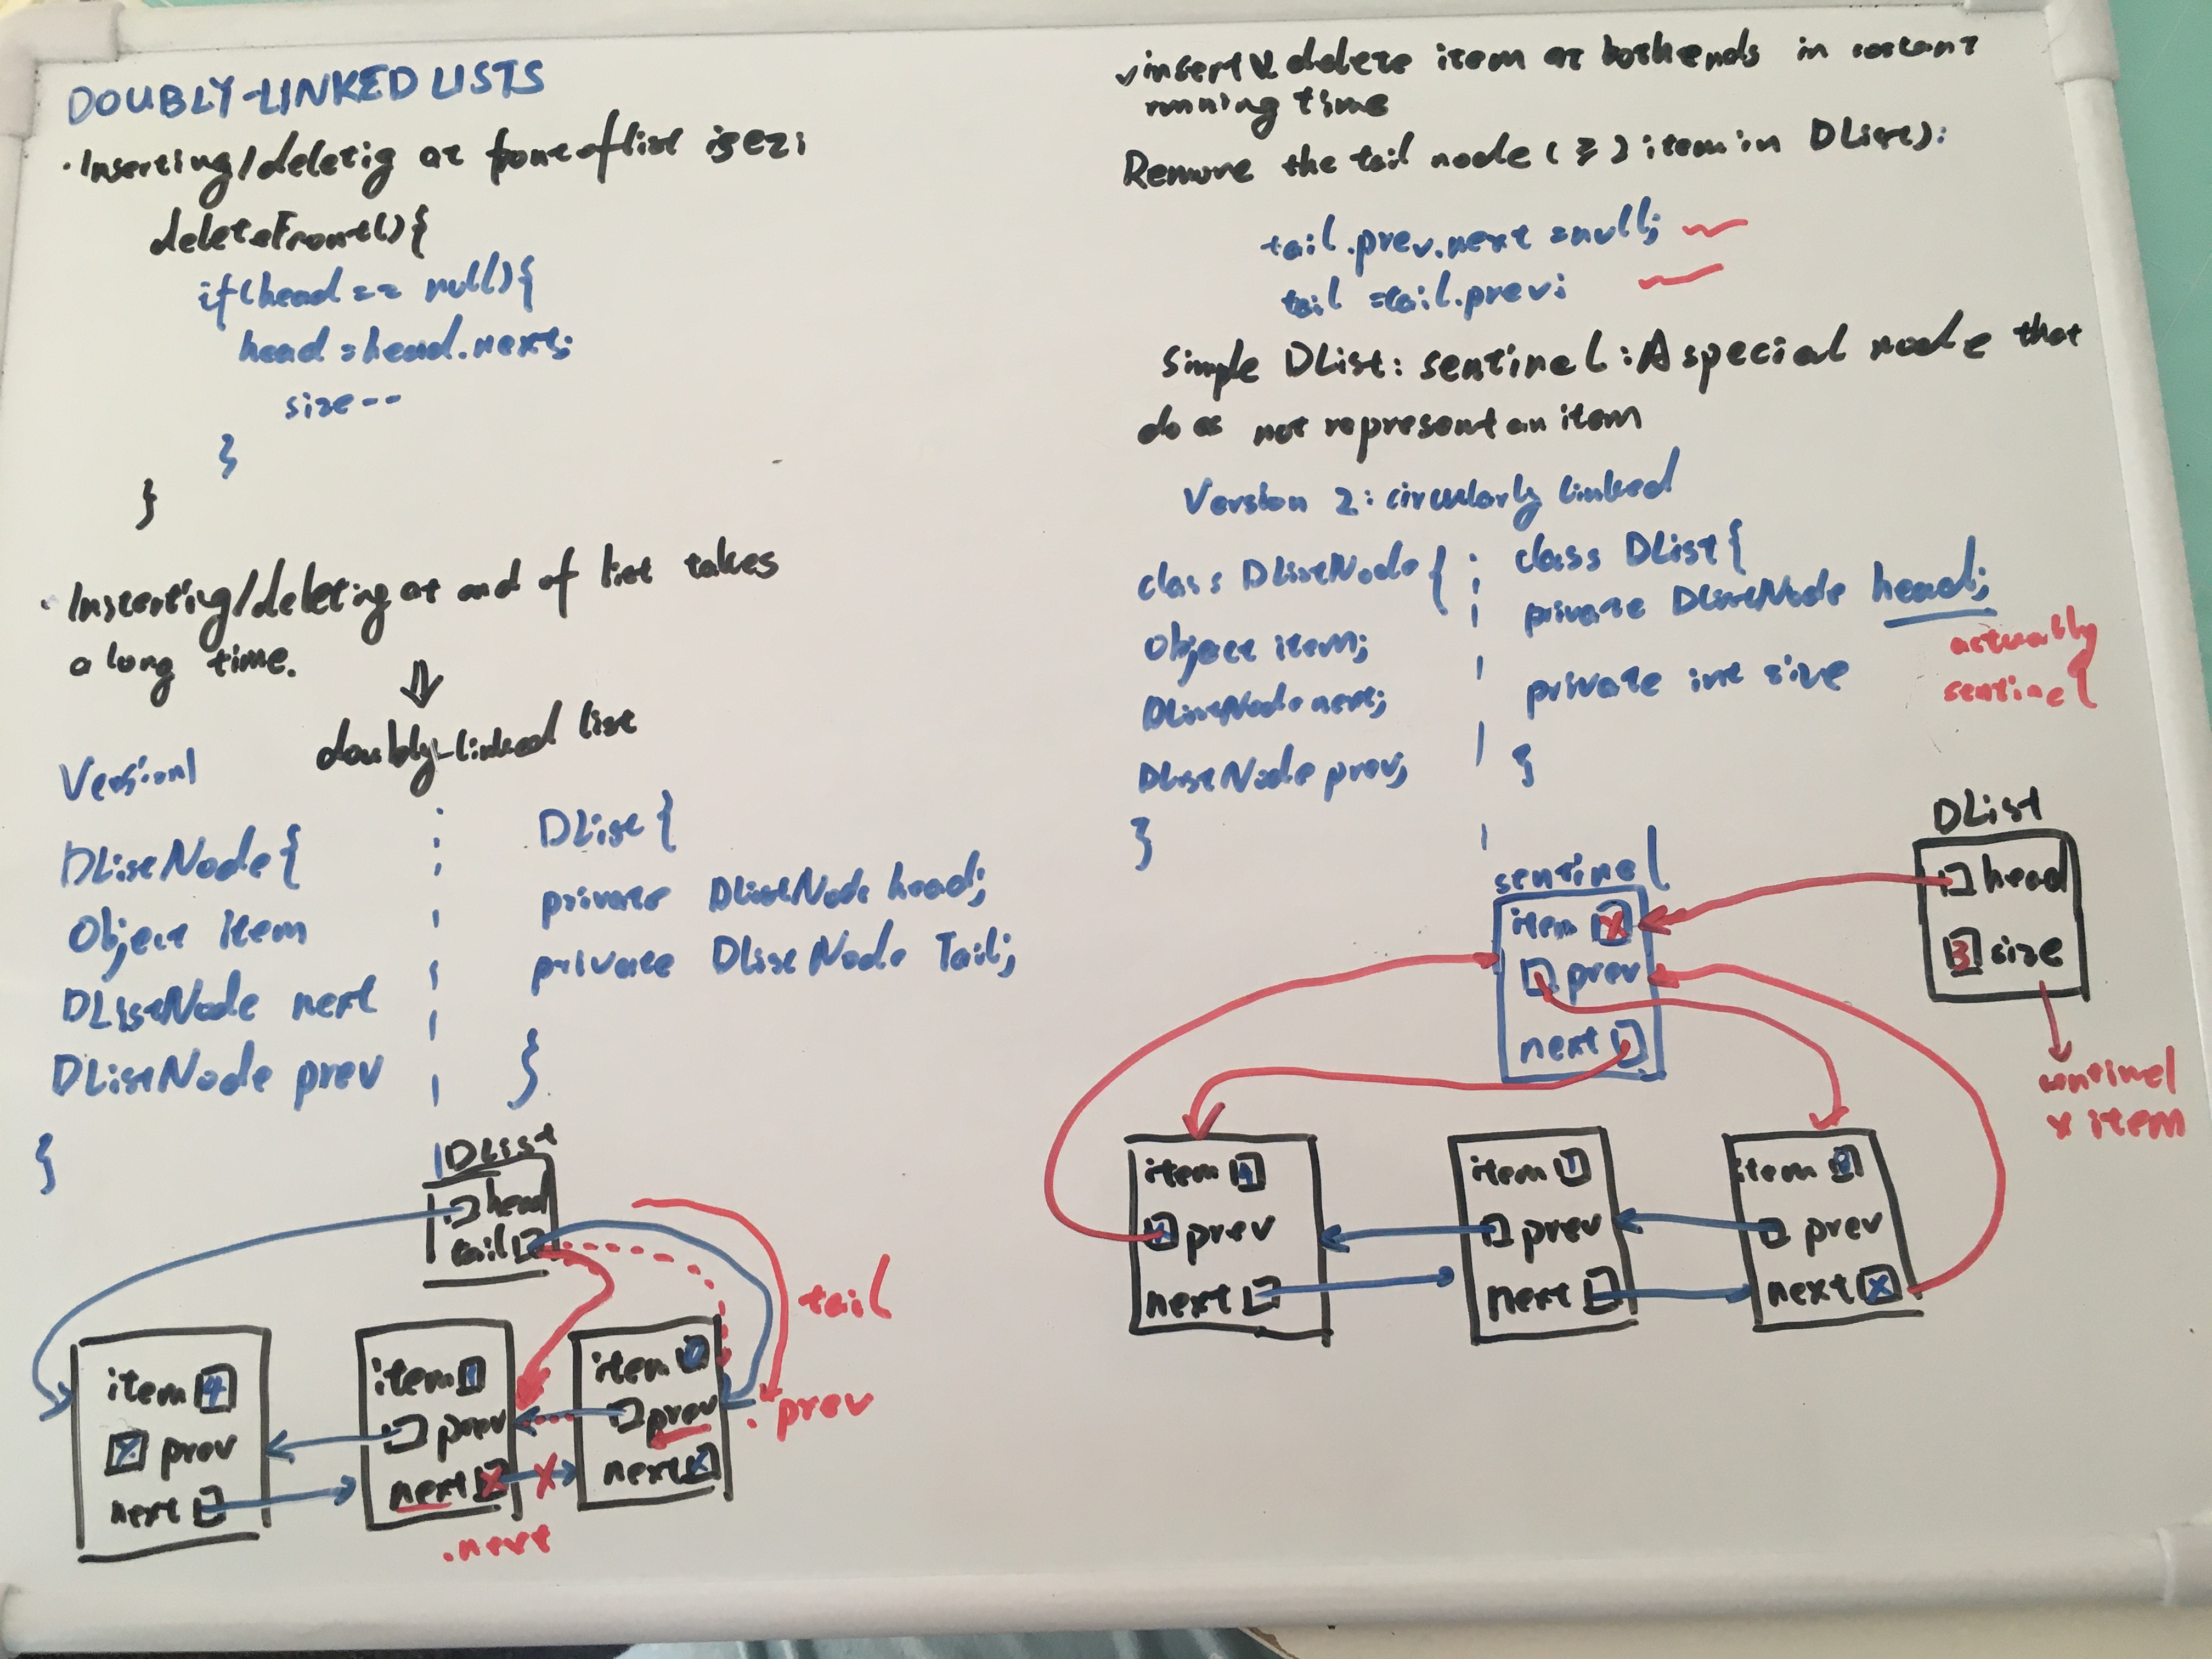 DOUBLY-LINKED LISTS
· Inserting/deletig at front of list is ezi
deleteFront(){
if(head == null){
head = head.next;
size--
}
}
· Inserting/deleting at end of list takes
a long time.
⇓
doubly-linked list
Version1
DListNode{
Object item
DListNode next
DListNode prev
}
DList{
private DListNode head;
private DListNode Tail;
}
DList
head
tail
item 4
X prev
next
item 1
prev
next X
X
.next
item
prev
next X
tail
.prev
✓insert & delete item at both ends in costant
running time
Remove the tail node (≥2 item in DList):
tail.prev.next = null;
tail = tail.prev;
Simple DList: sentinel: A special node that
does not represent an item
Version 2: circularly linked
class DListNode {
Object item;
DListNode next;
DListNode prev;
}
class DList{
private DListNode head;
actually
sentinel
private int size
}
DList
head
3 size
sentinel
x item
sentinel
item X
prev
next
item 4
prev
next
item 1
prev
next
item
prev
next X